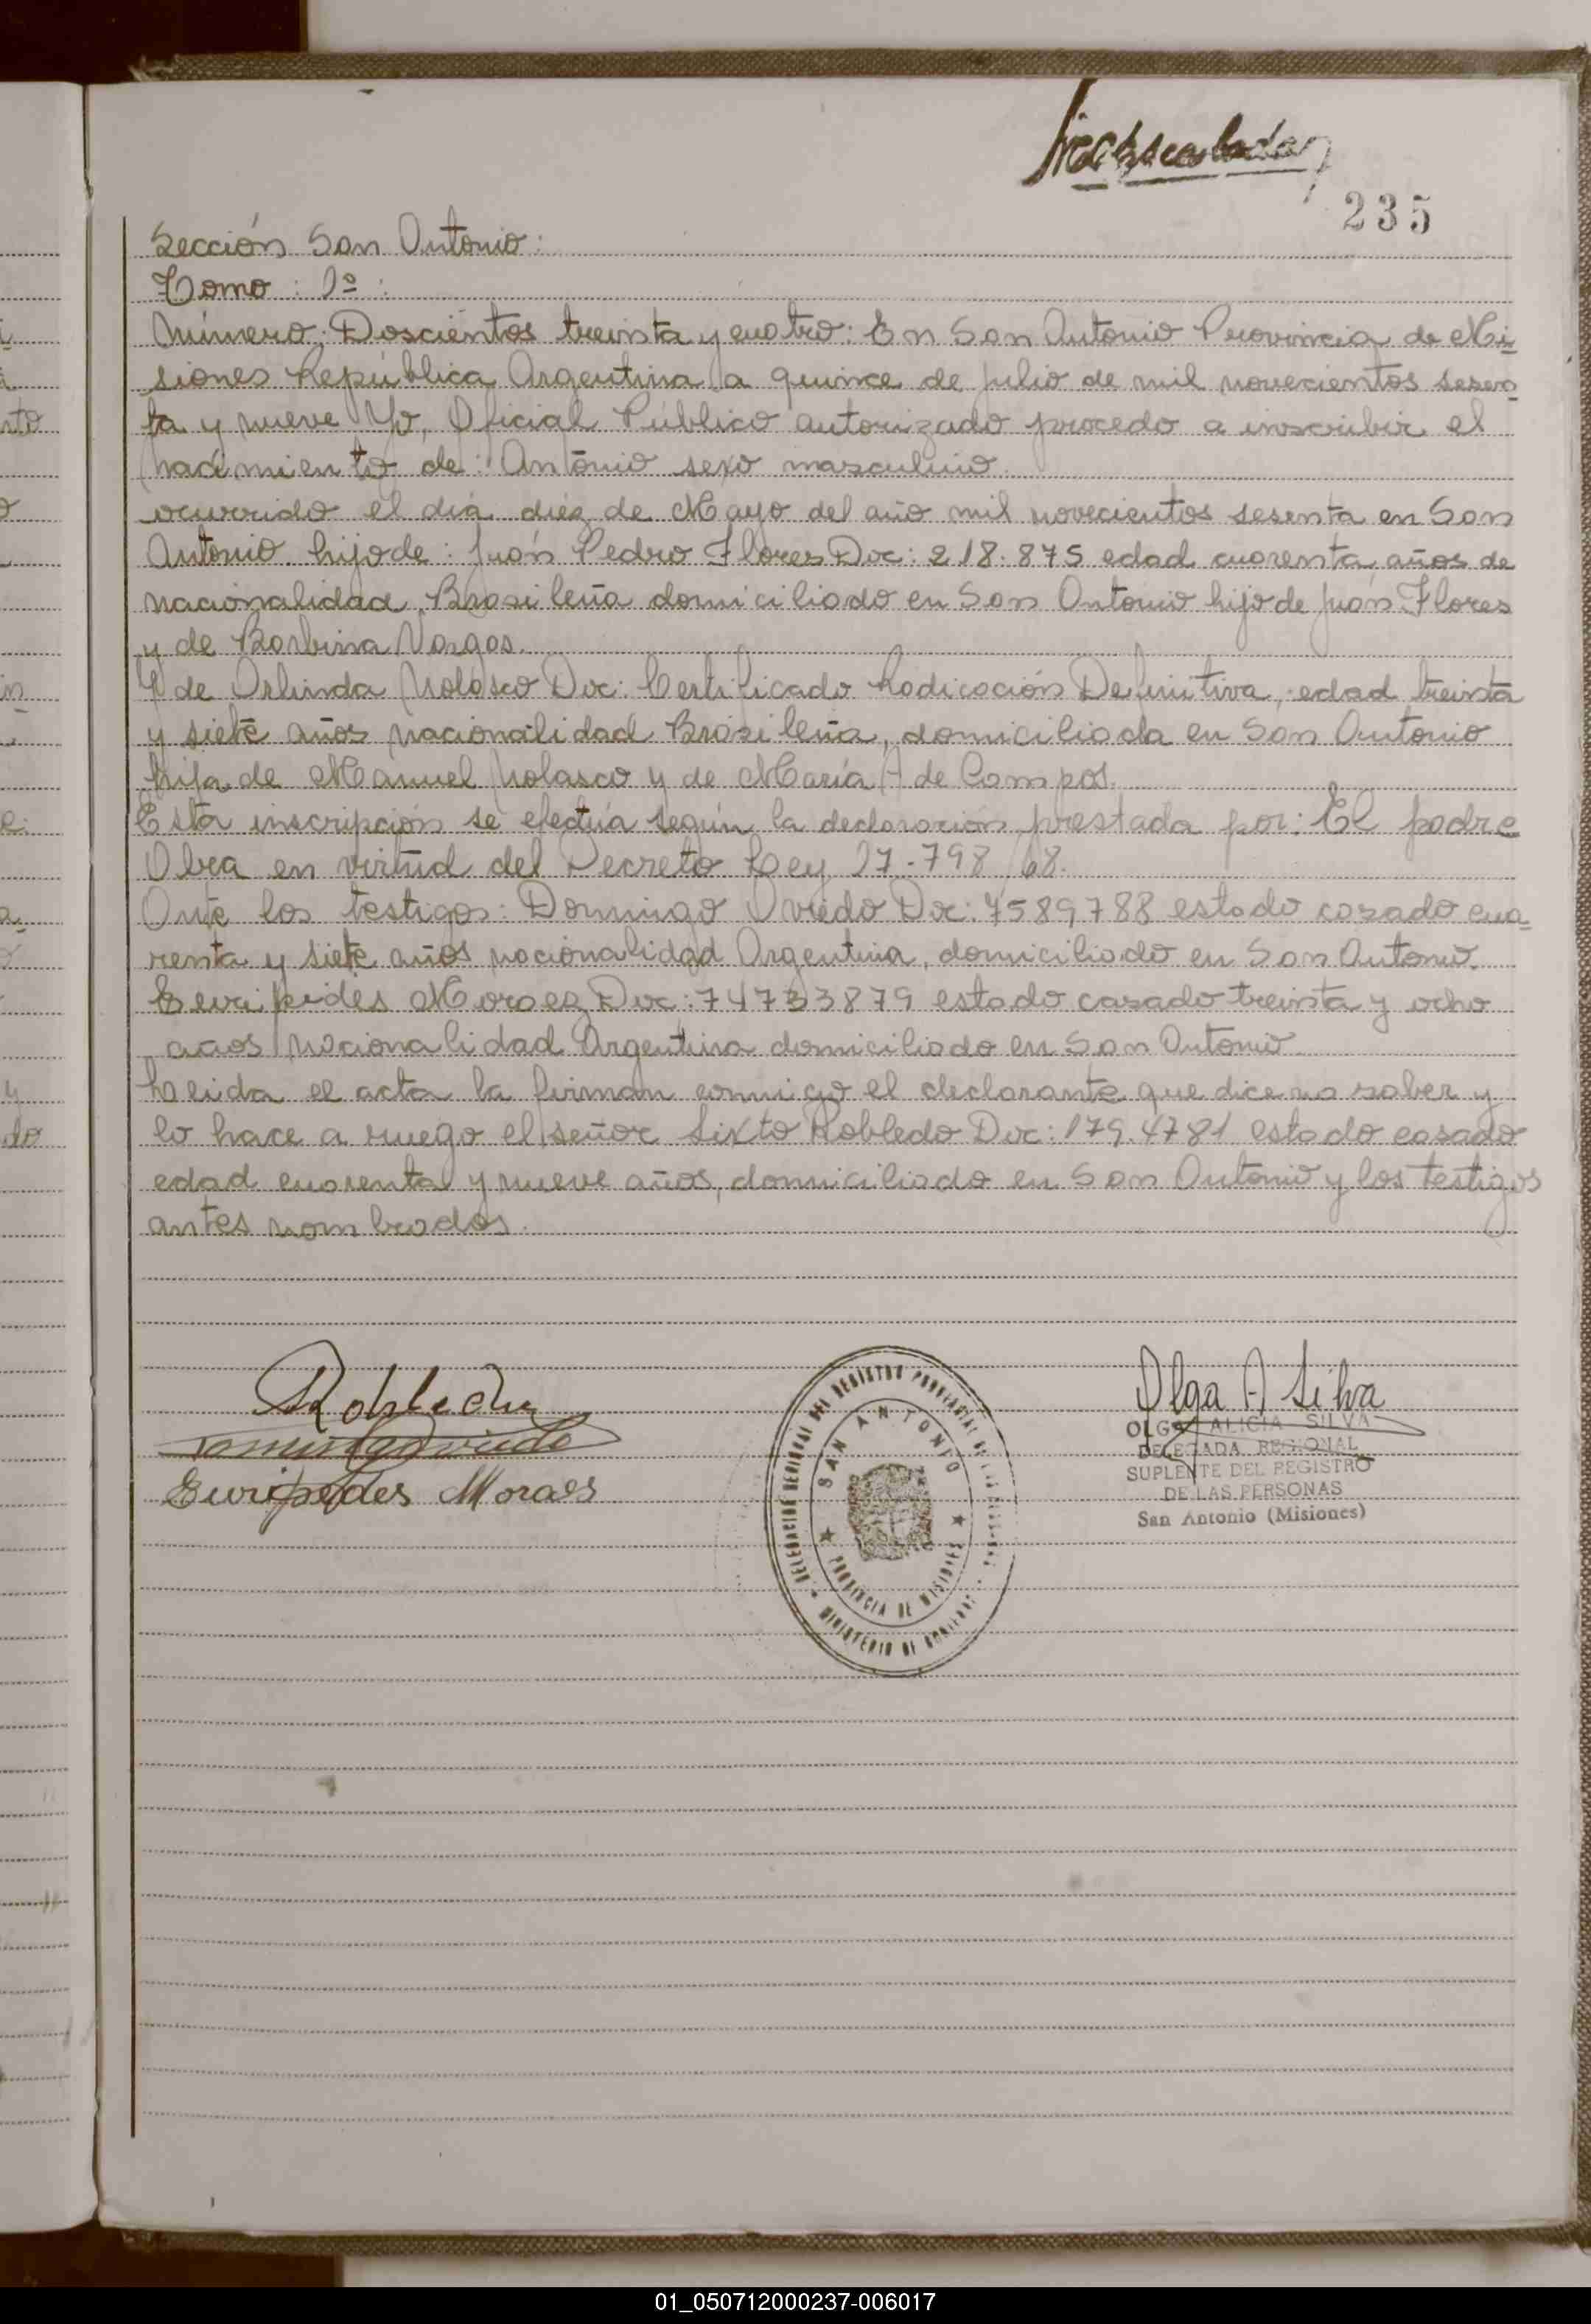 235
Sección San Antonio:
Tomo: 1º:
Número: Doscientos treinta y cuatro: En San Antonio Provincia de Mi-
siones República Argentina a quince de julio de mil novecientos sesen-
ta y nueve Yo, Oficial Público autorizado procedo a inscribir el
nacimiento de: Antonio sexo masculino
ocurrido el día diéz de Mayo del año mil novecientos sesenta en San
Antonio. hijo de: Juán Pedro Flores Doc: 218.875 edad cuarenta años de
nacionalidad Brasileña domiciliado en San Antonio hijo de Juán Flores
y de Barbina Vargas.
Y de Orlinda Nolasco Doc: Certificado Radicación Definitiva, edad treinta
y siete años nacionalidad Brasileña, domiciliada en San Antonio
hija de Manuel Nolasco y de María A de Campos.
Esta inscripción se efectúa según la declaración prestada por: El padre
Obra en virtud del Decreto Ley 17.798/68.
Ante los testigos: Domingo Oviedo Doc: 7589788 estado casado cua-
renta y siete años nacionalidad Argentina, domiciliado en San Antonio.
Eurípides Moraez Doc: 74733879 estado casado treinta y ocho
años nacionalidad Argentina domiciliado en San Antonio
Leida el acta la firman conmigo el declarante que dice no saber y
lo hace a ruego el señor Sixto Robledo Doc: 179.4781 estado casado
edad cuarenta y nueve años, domiciliado en San Antonio y los testigos
antes nombrados.
Robledo
Domingo Oviedo
Euripedes Moraes
DELEGACIÓN REGIONAL DEL REGISTRO PROVINCIAL DE LAS PERSONAS
SAN ANTONIO
PROVINCIA DE MISIONES
MINISTERIO DE GOBIERNO
Olga A Silva
OLGA ALICIA SILVA
DELEGADA REGIONAL
SUPLENTE DEL REGISTRO
DE LAS PERSONAS
San Antonio (Misiones)
01_050712000237-006017